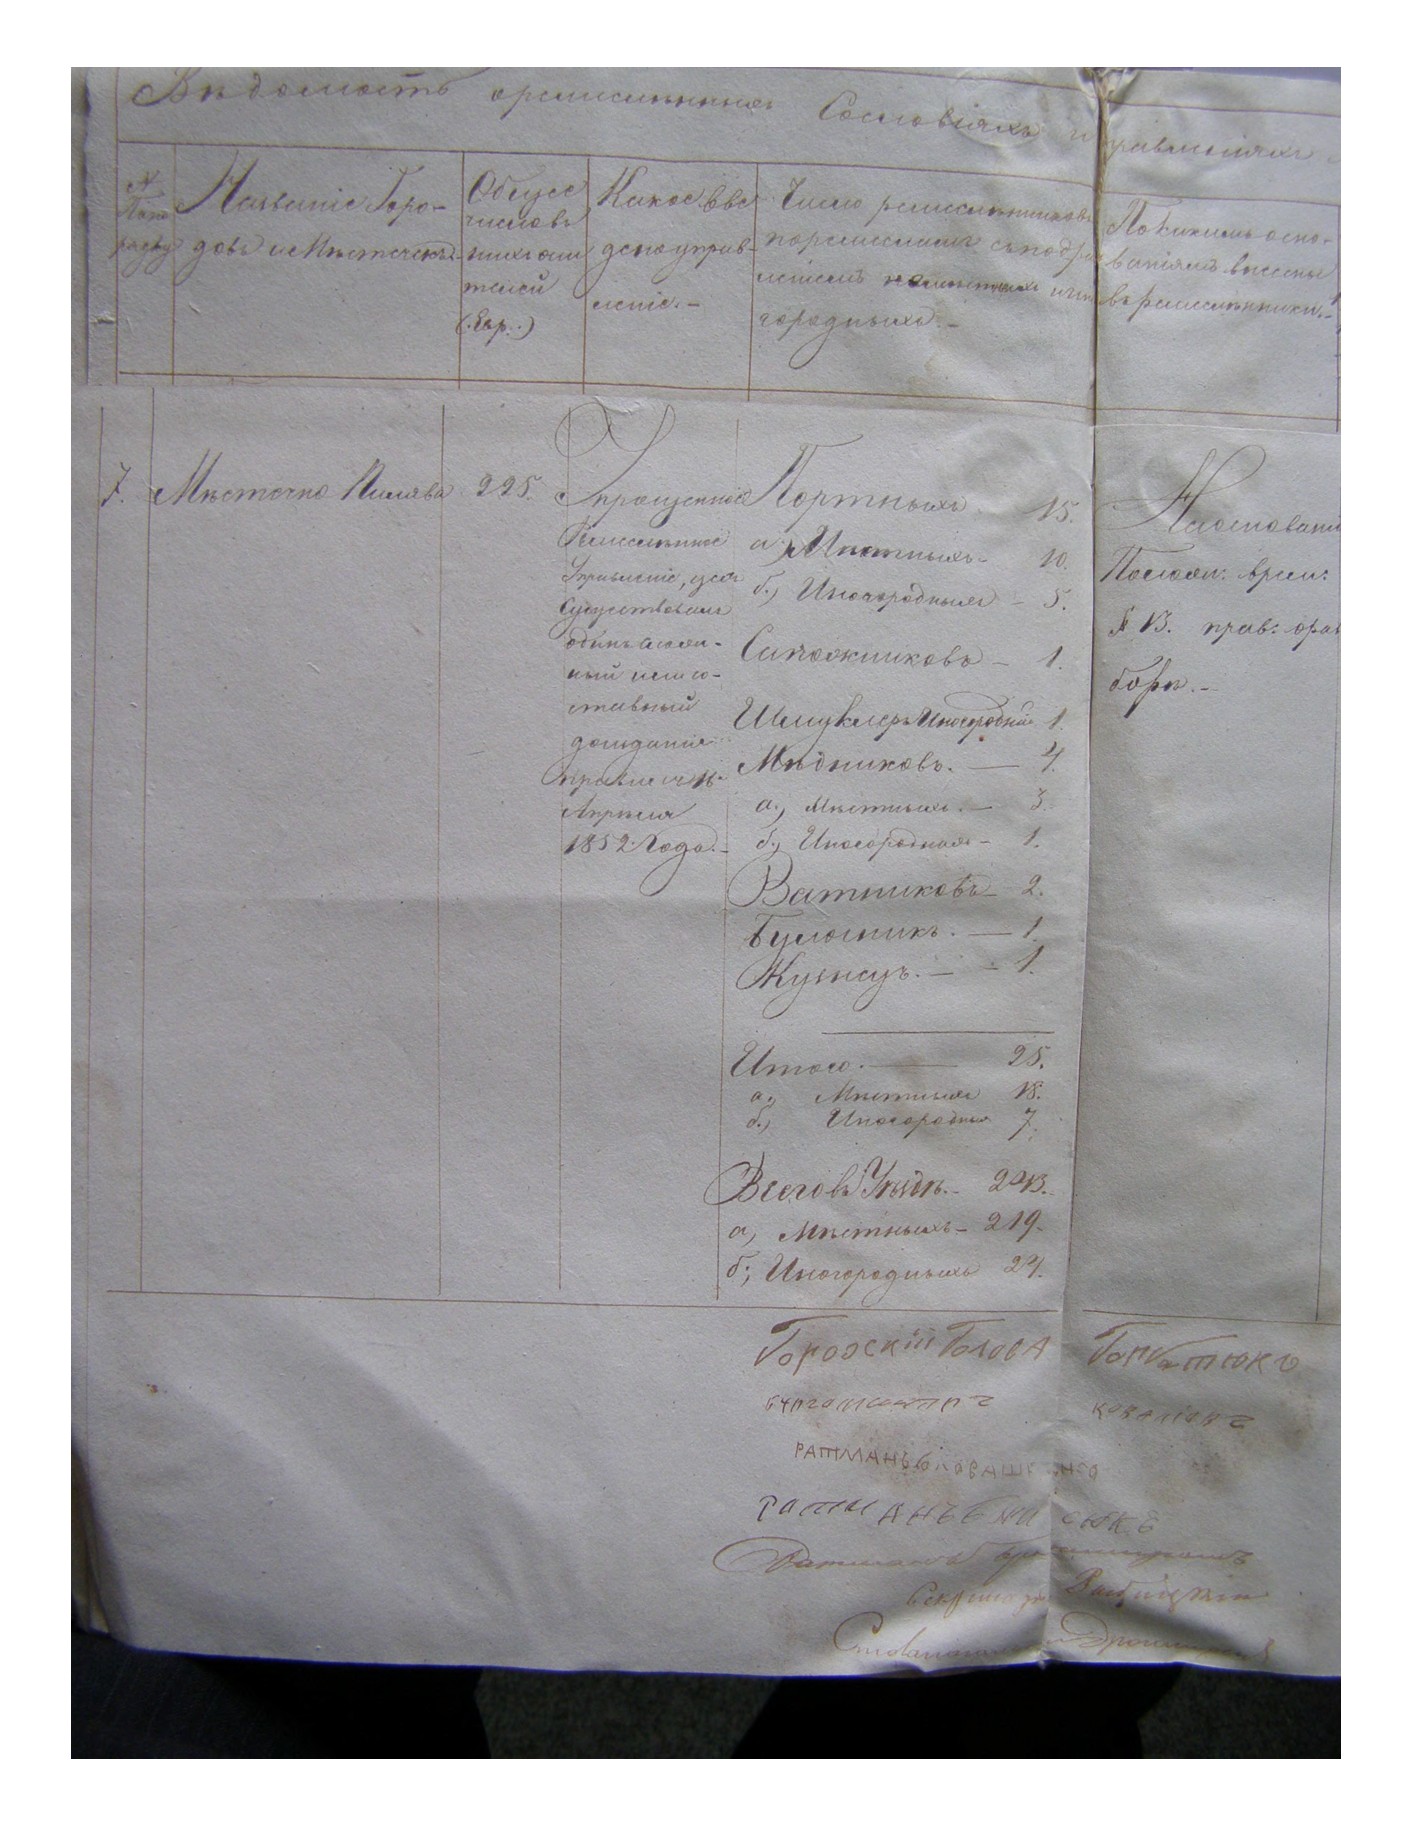 Вѣдомость о ремесленныхъ Сословіяхъ и управленіяхъ
№
По по
рядку
Названіе Горо-
довъ и Мѣстечекъ.
Общее
число въ
нихъ жи
телей
(Евр.)
Какое вве
дено управ-
леніе.-
Число ремесленниковъ
по ремесламъ съ подраз
леніемъ на мѣстныхъ и ино
городныхъ.-
По какимъ осно-
ваніямъ внесены
въ ремесленники.-
7. Мѣстечко Пилява 225.
Упрощенное
Ремесленное
Управленіе, гдѣ
существовалъ
одинъ
ный
1852 Года.-
Апрѣля
Портныхъ 15.
а., Мѣстныхъ- 10.
б., Иногородныхъ - 5.
Сапожниковъ - 1.
Шмуклеръ Иногородній 1.
Мѣдниковъ. — 4.
а., Мѣстныхъ. — 3.
б., Иногородныхъ - 1.
Ватниковъ - 2.
Булочникъ. — 1.
Кузнецъ. — - 1.
Итого. — 25.
а., Мѣстныхъ 18.
б., Иногородныхъ 7.
Всего въ Уѣздѣ.- 243.
а, Мѣстныхъ - 219.
б, Иногородныхъ 24.
На основаніи
Положен: Врем:
§ 13. прав: о раз
борѣ.-
Городскій Голова Горбатюкъ
Бургомистръ
Ратманъ
Ратманъ
Ратманъ
Секретарь
Столоначальникъ